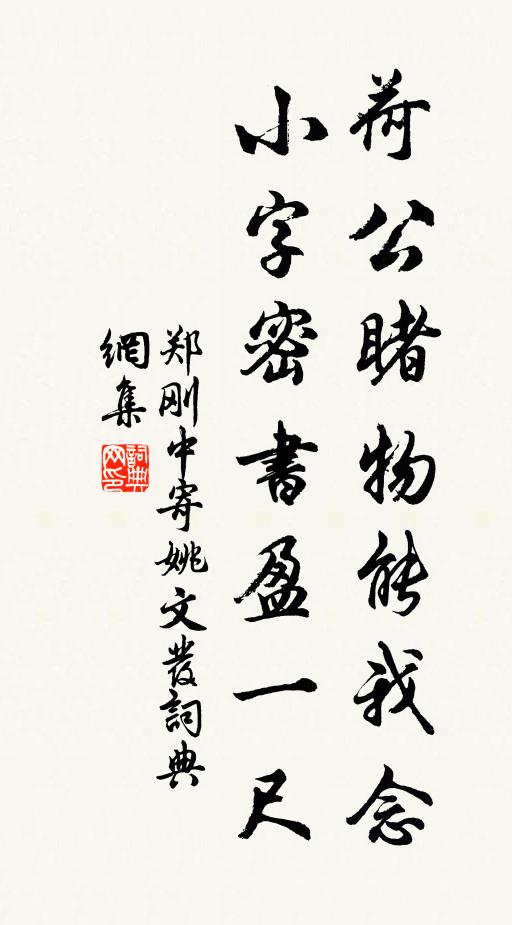 荷公睹物能我念
小字密書盈一尺
郑刚中寄姚文發詞典
網集
詞典
网印